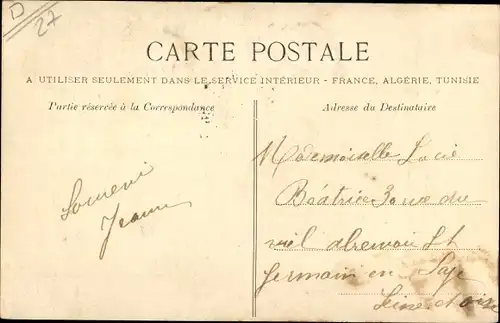 D
27
CARTE POSTALE
A UTILISER SEULEMENT DANS LE SERVICE INTÉRIEUR - FRANCE, ALGÉRIE, TUNISIE
Partie réservée à la Correspondance
Adresse du Destinataire
Souvenir
Jeanne
Mademoiselle Lucie
Béatrice 30 rue du
viel St
Germain en Laye
Seine et oise